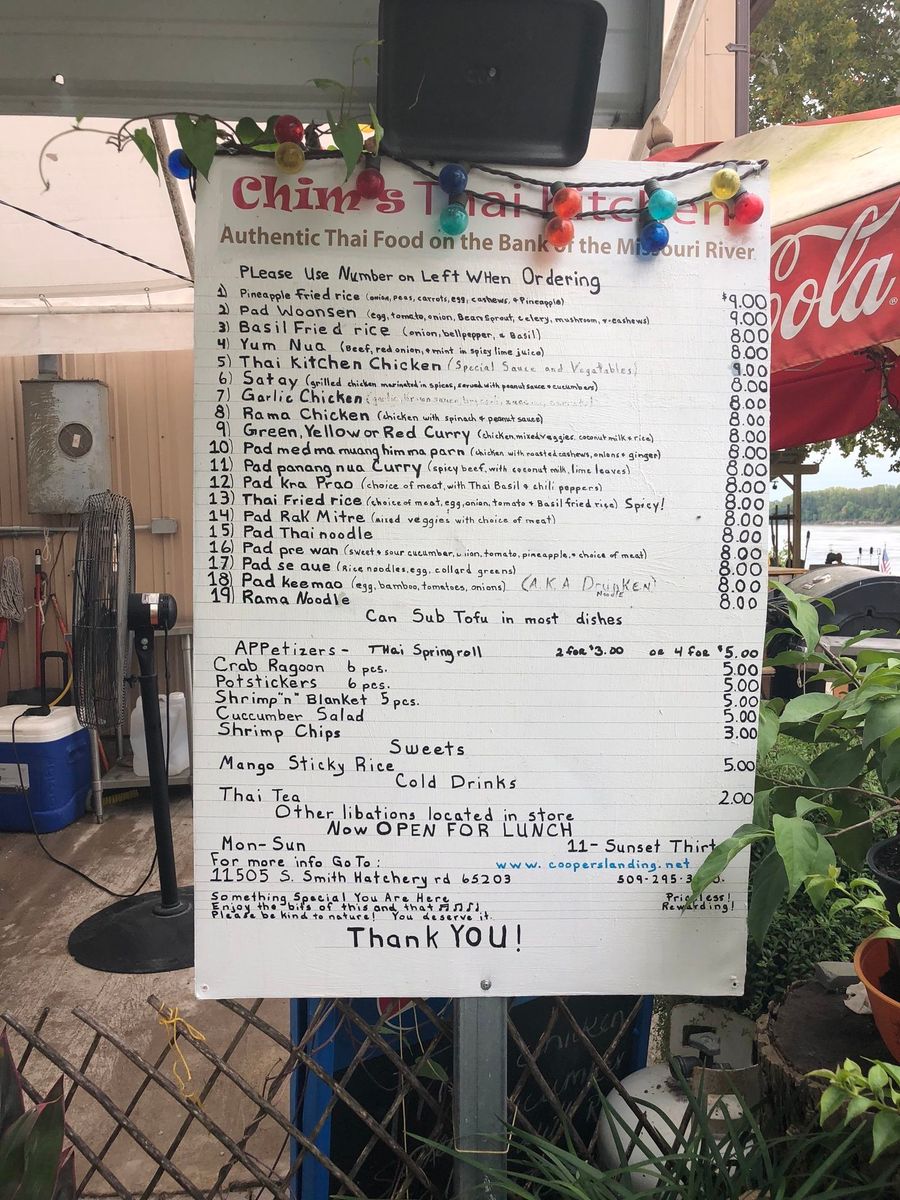 Chim's Thai Kitchen
Authentic Thai Food on the Bank of the Missouri River
Please Use Number on Left When Ordering
1) Pineapple fried rice (onion, peas, carrots, egg, cashews, + Pineapple) $9.00
2) Pad Woonsen (egg, tomato, onion, Bean Sprout, celery, mushroom, + cashews) 9.00
3) Basil Fried rice (onion, bellpepper, & Basil) 8.00
4) Yum Nua (Beef, red onion, + mint in spicy lime juice) 8.00
5) Thai Kitchen Chicken (Special Sauce and Vegatables) 9.00
6) Satay (grilled chicken marinated in spices, served with peanut sauce + cucumbers) 8.00
7) Garlic Chicken (garlic, brown sauce, 8.00
8) Rama Chicken (chicken with spinach + peanut sauce) 8.00
9) Green, Yellow or Red Curry (chicken, mixed veggies, coconut milk + rice) 8.00
10) Pad med ma muang himma parn (chicken with roasted cashews, onions + ginger) 8.00
11) Pad panang nua Curry (spicy beef, with coconut milk, lime leaves) 8.00
12) Pad Kna Prao (choice of meat, with Thai Basil + chili peppers) 8.00
13) Thai Fried rice (choice of meat, egg, onion, tomato + Basil fried rice) Spicy! 8.00
14) Pad Rak Mitre (mixed veggies with choice of meat) 8.00
15) Pad Thai noodle 8.00
16) Pad pre wan (sweet + sour cucumber, onion, tomato, pineapple, + choice of meat) 8.00
17) Pad se aue (Rice noodles, egg, collard greens) 8.00
18) Pad keemao (egg, bamboo, tomatoes, onions) (A.K.A Drunken Noodle) 8.00
19) Rama Noodle 8.00
Can Sub Tofu in most dishes
APPetizers - THai Springroll 2 for $3.00 or 4 for $5.00
Crab Ragoon 6 pcs. 5.00
Potstickers 6 pcs. 5.00
Shrimp "n" Blanket 5 pcs. 5.00
Cuccumber Salad 5.00
Shrimp Chips 3.00
Sweets
Mango Sticky Rice 5.00
Cold Drinks
Thai Tea 2.00
Other libations located in store
Now OPEN FOR LUNCH
Mon-Sun 11- Sunset Thirt
For more info Go To: www.cooperslanding.net
11505 S. Smith Hatchery rd 65203 509-295-3
Something Special You Are Here Priceless!
Enjoy the bits of this and that ♬♫♪♩ Rewarding!
Please be kind to nature! You deserve it.
Thank YOU!
Cola